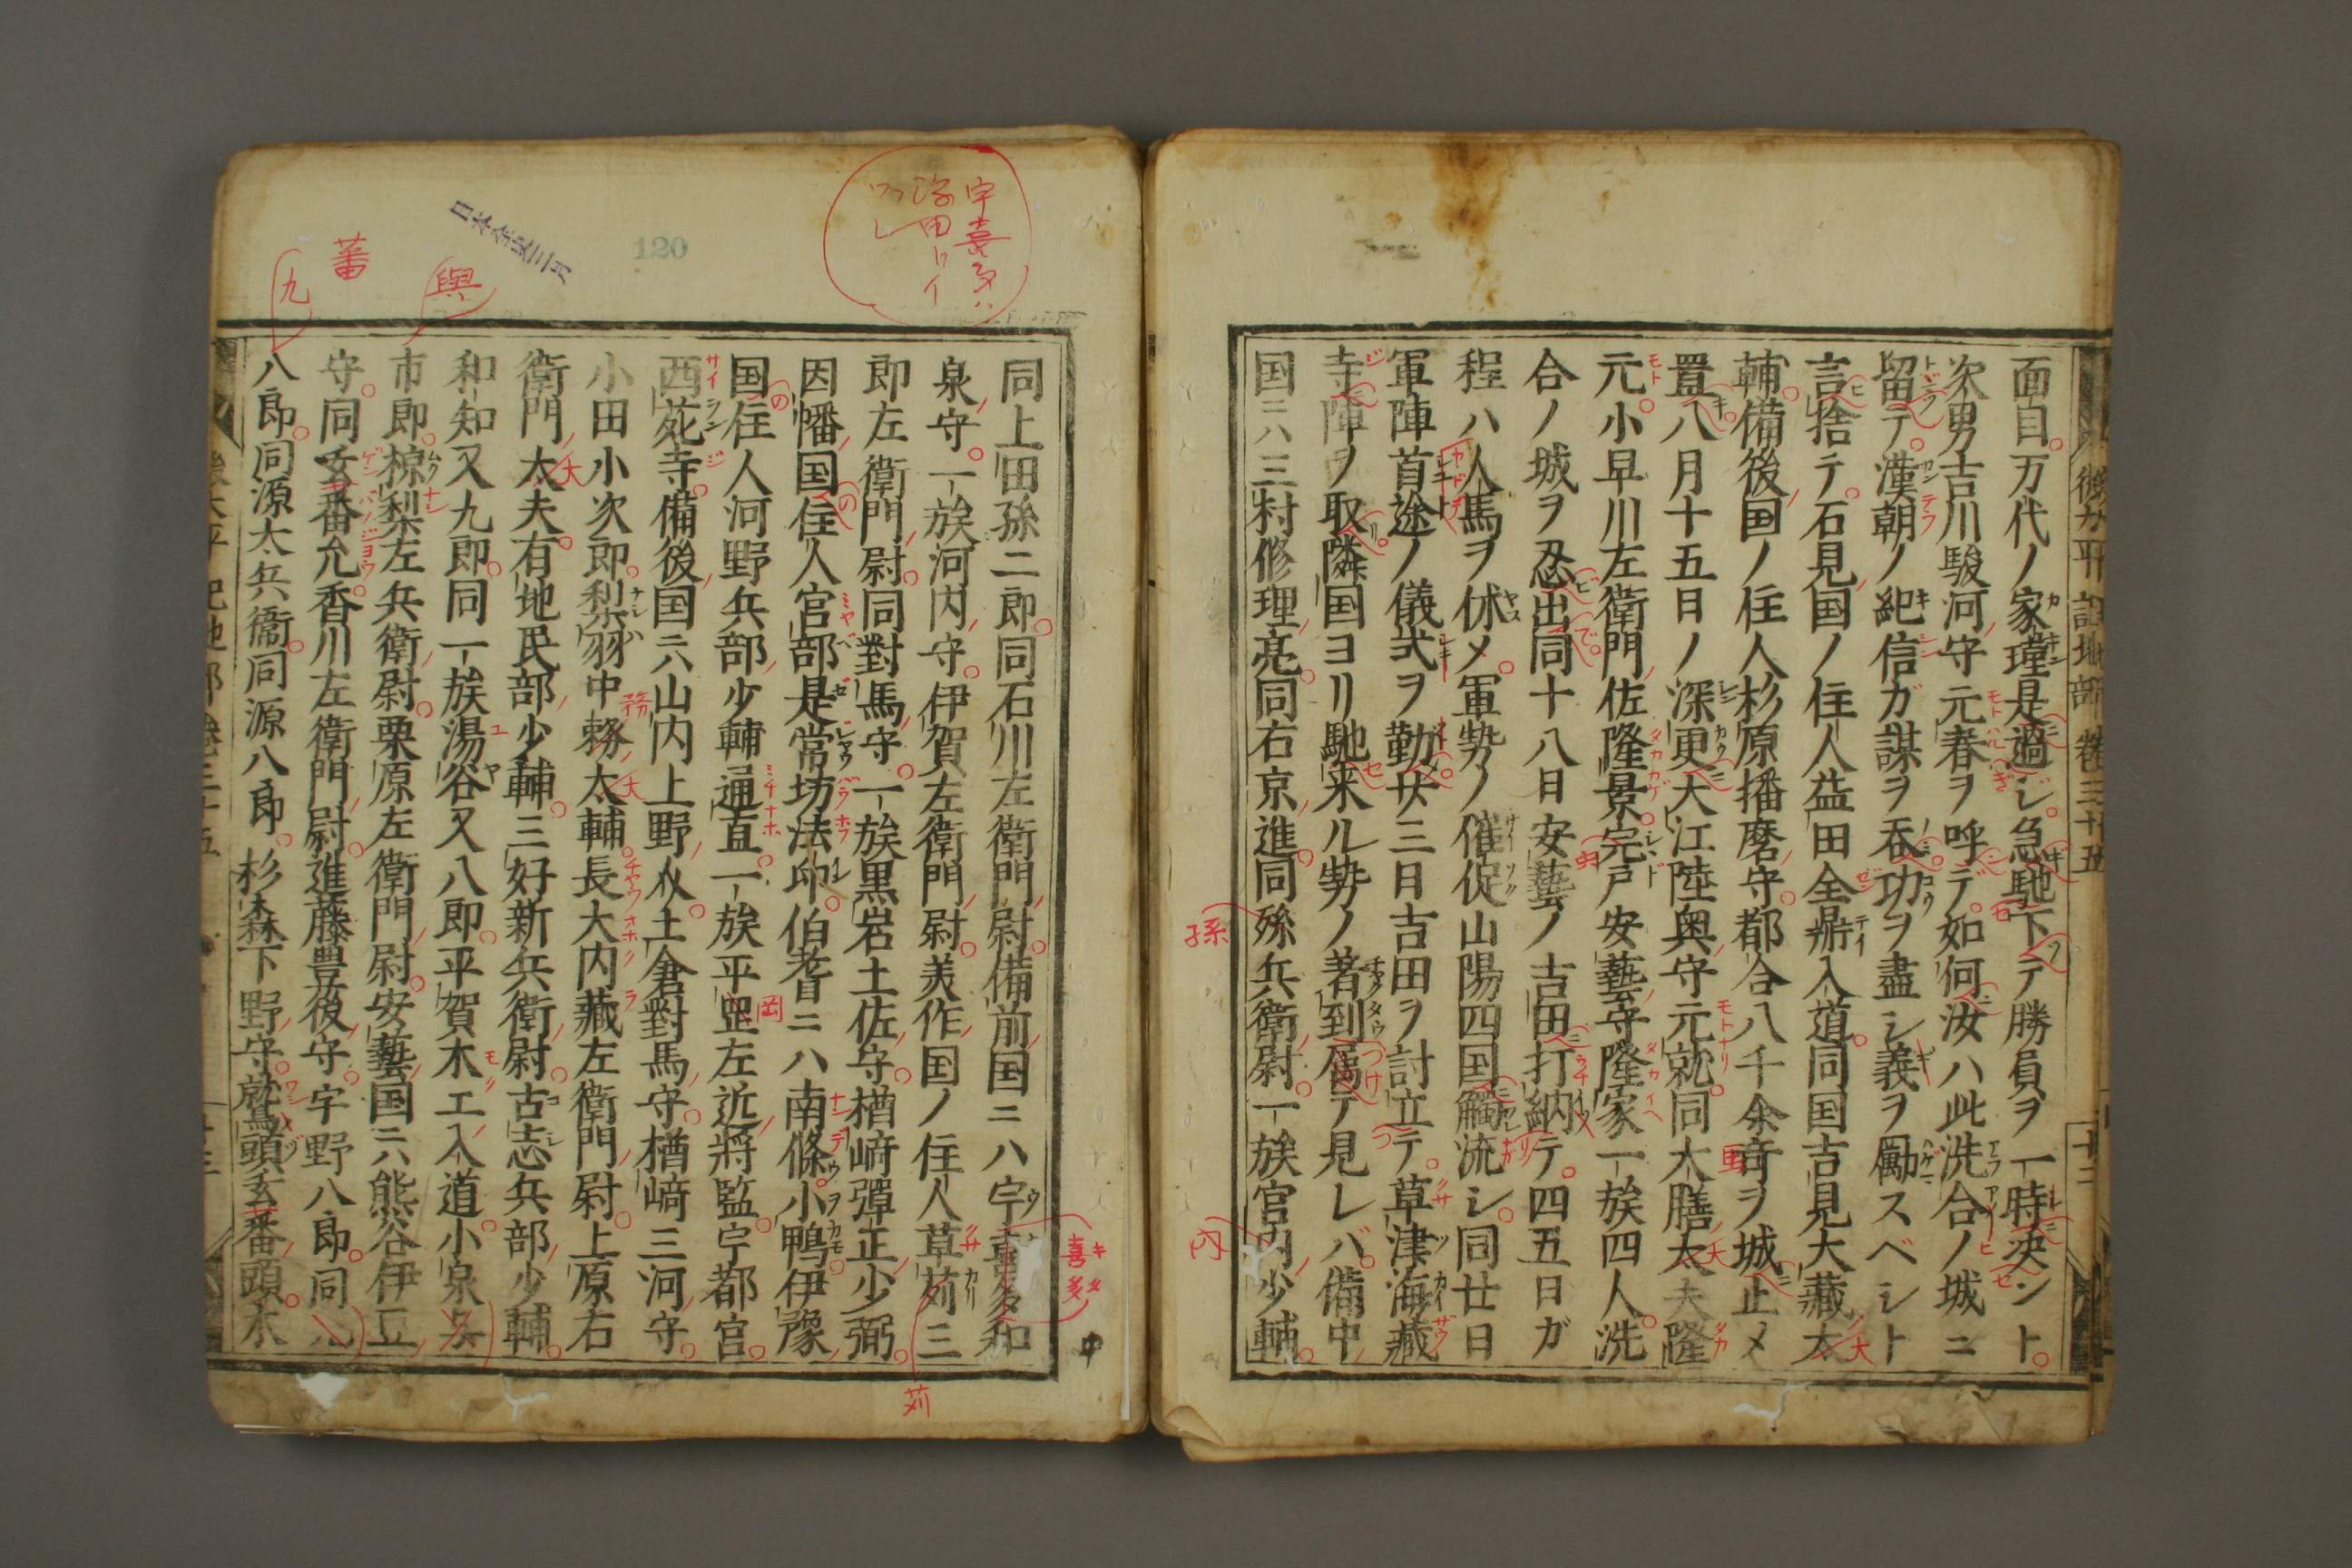 後太平記地部 巻三十五
面目万代ノ家瑾是過シ急馳下テ勝員ヲ一時決ント
次男吉川駿河守元春ヲ呼デ如何汝ハ此洗合ノ城ニ
留テ漢朝ノ紀信ガ謀ヲ呑功ヲ盡シ義ヲ勵スベシト
言捨テ石見国ノ住人益田全鼎入道同国吉見大藏太
輔備後国ノ住人杉原播磨守都合八千余竒ヲ城止メ
置八月十五日ノ深更大江陸奥守元就同大膳太夫隆
元小早川左衛門佐隆景完戸安藝守隆家一族四人洗
合ノ城ヲ忍出同十八日安藝ノ吉田打納テ四五日ガ
程ハ人馬ヲ休メ軍勢ノ催促山陽四国觸流シ同廿日
軍陣首途ノ儀式ヲ勤廿三日吉田ヲ討立テ草津海藏
寺陣ヲ取隣国ヨリ馳来ル勢ノ著到属テ見レバ備中
国ニハ三村修理亮同右京進同孫兵衛尉一族宮内少輔
同上田孫二郎同石川左衛門尉備前国ニハ宇喜多和
泉守一族河内守伊賀左衛門尉美作国ノ住人草苅三
郎左衛門尉同對馬守一族黒岩土佐守楢﨑彈正少弼
因幡国住人宮部是常坊法印伯耆ニハ南條小鴨伊豫
国住人河野兵部少輔通直一族平罡左近將監宇都宮
西苑寺備後国ニハ山内上野介土倉對馬守楢﨑三河守
小田小次郎梨羽中務太輔長大内藏左衛門尉上原右
衛門太夫有地民部少輔三好新兵衛尉古志兵部少輔
和知又九郎同一族湯谷又八郎平賀木工入道小泉
市郎椋梨左兵衛尉栗原左衛門尉安藝国ニハ熊谷伊豆
守同玄番允香川左衛門尉進藤豊後守宇野八郎同
八郎同源太兵衛同源八郎杉森下野守鷲頭玄番頭木
宇喜多ハ
浮田トイ
フベシ
120
與
蕃
九
喜多
苅
孫
内
中